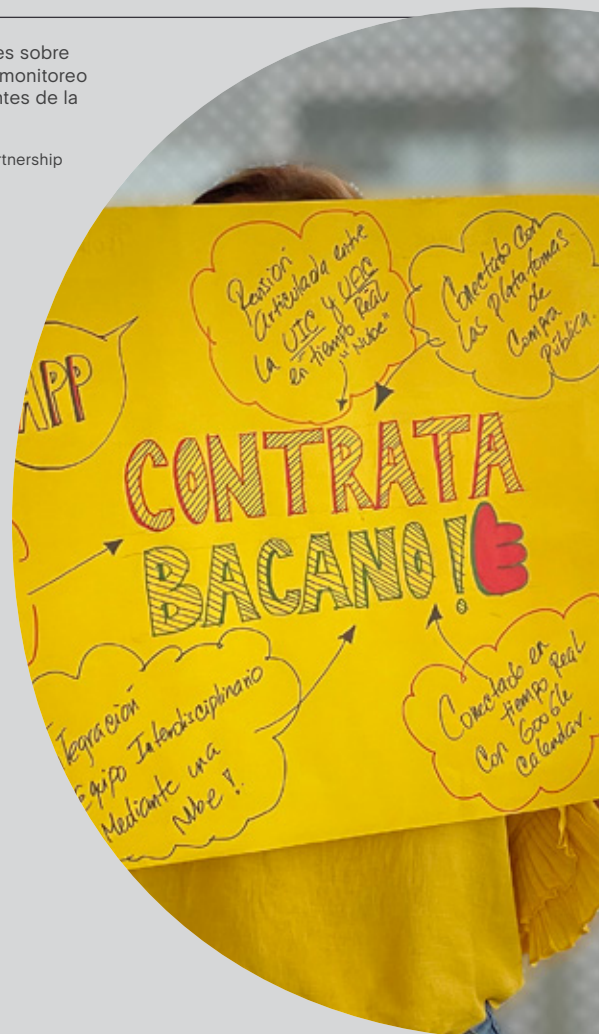 es sobre
monitoreo
ntes de la
rtnership
Revisión
articulada entre
la UIC y UAC
en tiempo Real
"Nube"
Conectado con
las plataformas
de
Compra
Pública.
APP
CONTRATA
BACANO!
tegración
Equipo Interdisciplinario
Mediante una
Nube!
Conectado en
tiempo Real
Con Google
Calendar.